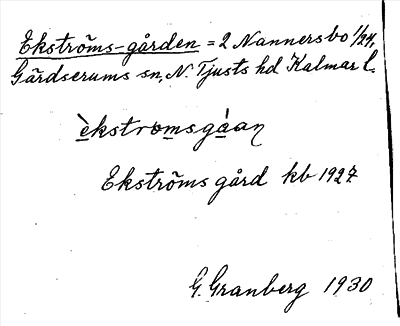 Ekströms-gården = 2 Nannersbo 1/24,
Gärdserums sn, N. Tjusts hd Kalmar l.
èkstromsgáan
Ekströms gård kb 1927
G. Granberg 1930